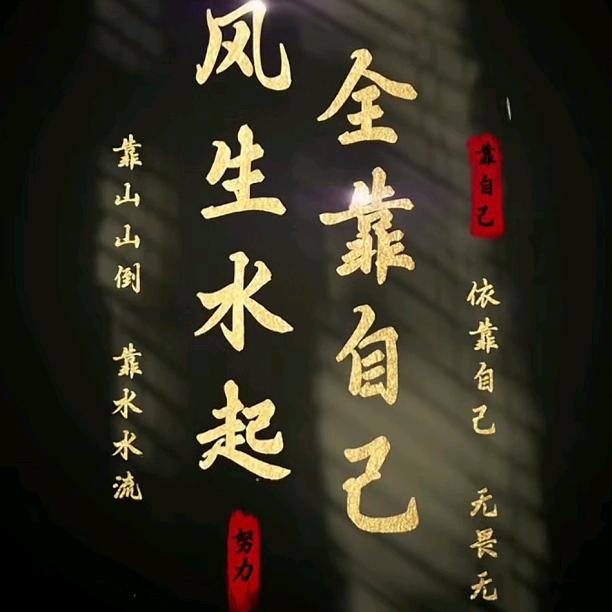 风生水起
全靠自己
靠自己
依靠自己 无畏无
靠山山倒 靠水水流
努力